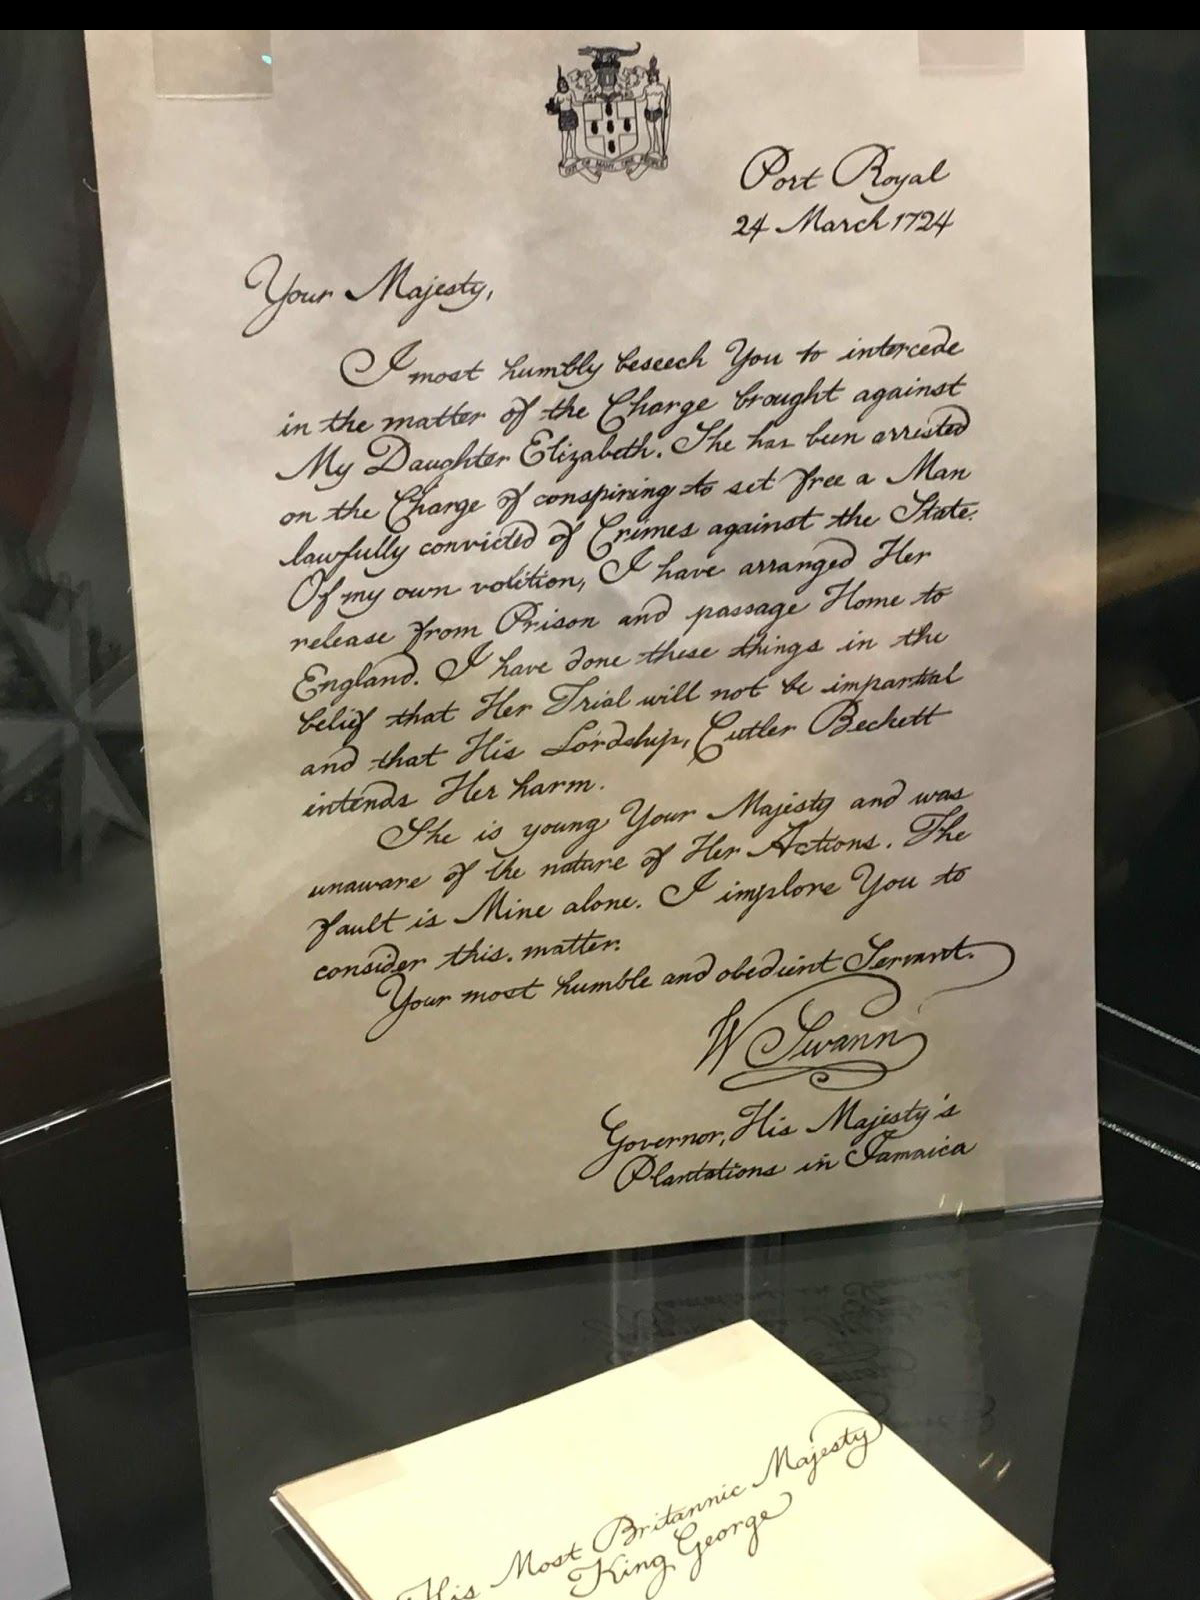 OUT OF MANY ONE PEOPLE
Port Royal
24 March 1724
Your Majesty,
I most humbly beseech You to intercede
in the matter of the Charge brought against
My Daughter Elizabeth. She has been arrested
on the Charge of conspiring to set free a Man
lawfully convicted of Crimes against the State.
Of my own volition, I have arranged Her
release from Prison and passage Home to
England. I have done these things in the
belief that Her Trial will not be impartial
and that His Lordship, Cutler Beckett
intends Her harm.
She is young Your Majesty and was
unaware of the nature of Her Actions. The
fault is Mine alone. I implore You to
consider this. matter.
Your most humble and obedient Servant.
W Swann
Governor, His Majesty's
Plantations in Jamaica
His Most Britannic Majesty
King George